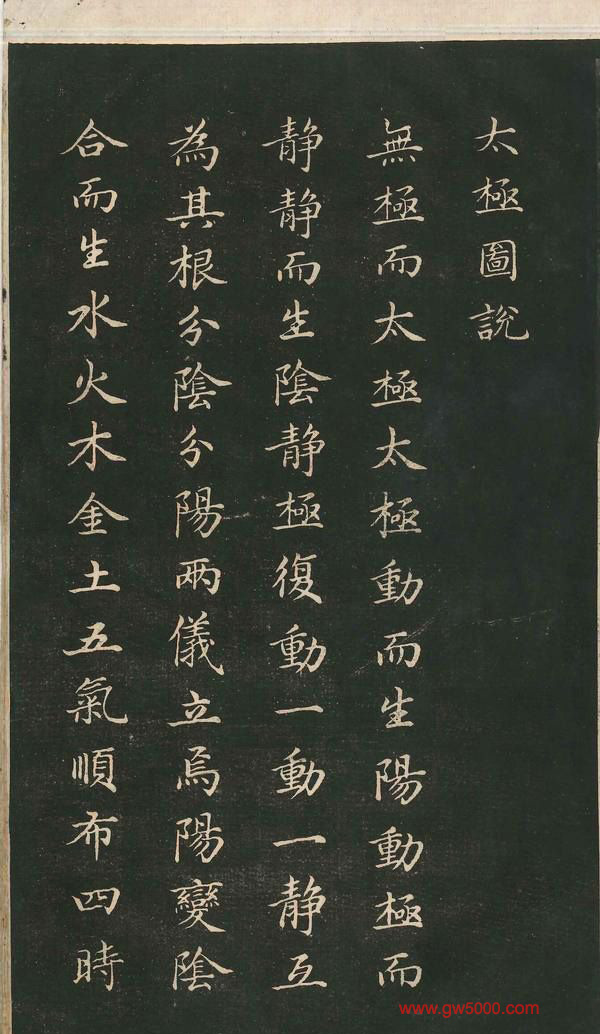 太極圖說
無極而太極太極動而生陽動極而
静静而生陰静極復動一動一静互
為其根分陰分陽兩儀立焉陽變陰
合而生水火木金土五氣順布四時
www.gw5000.com